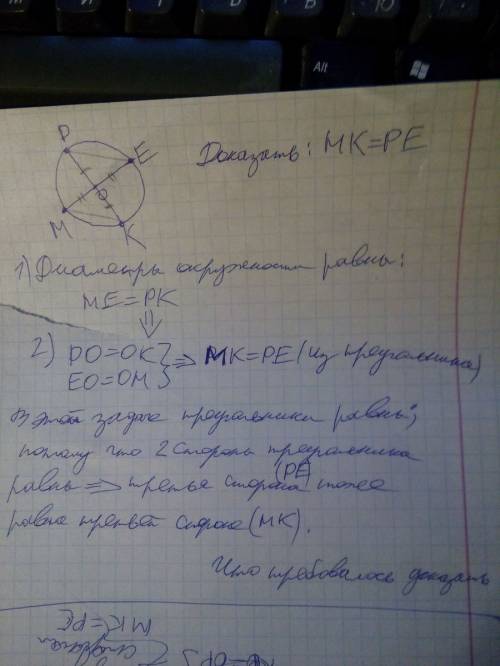 Ю
Alt
P
E
O
M
K
Доказать: MK=PE
1) Диаметры окружности равны:
ME=PK
⇓
2) PO=OK} ⇒ MK=PE (из треугольника)
EO=OM}
В этой задаче треугольники равны,
потому что 2 стороны треугольника
равны ⇒ третье сторона (PE) тоже
равна третьей стороне (MK).
Что требовалось доказать
MK=PE